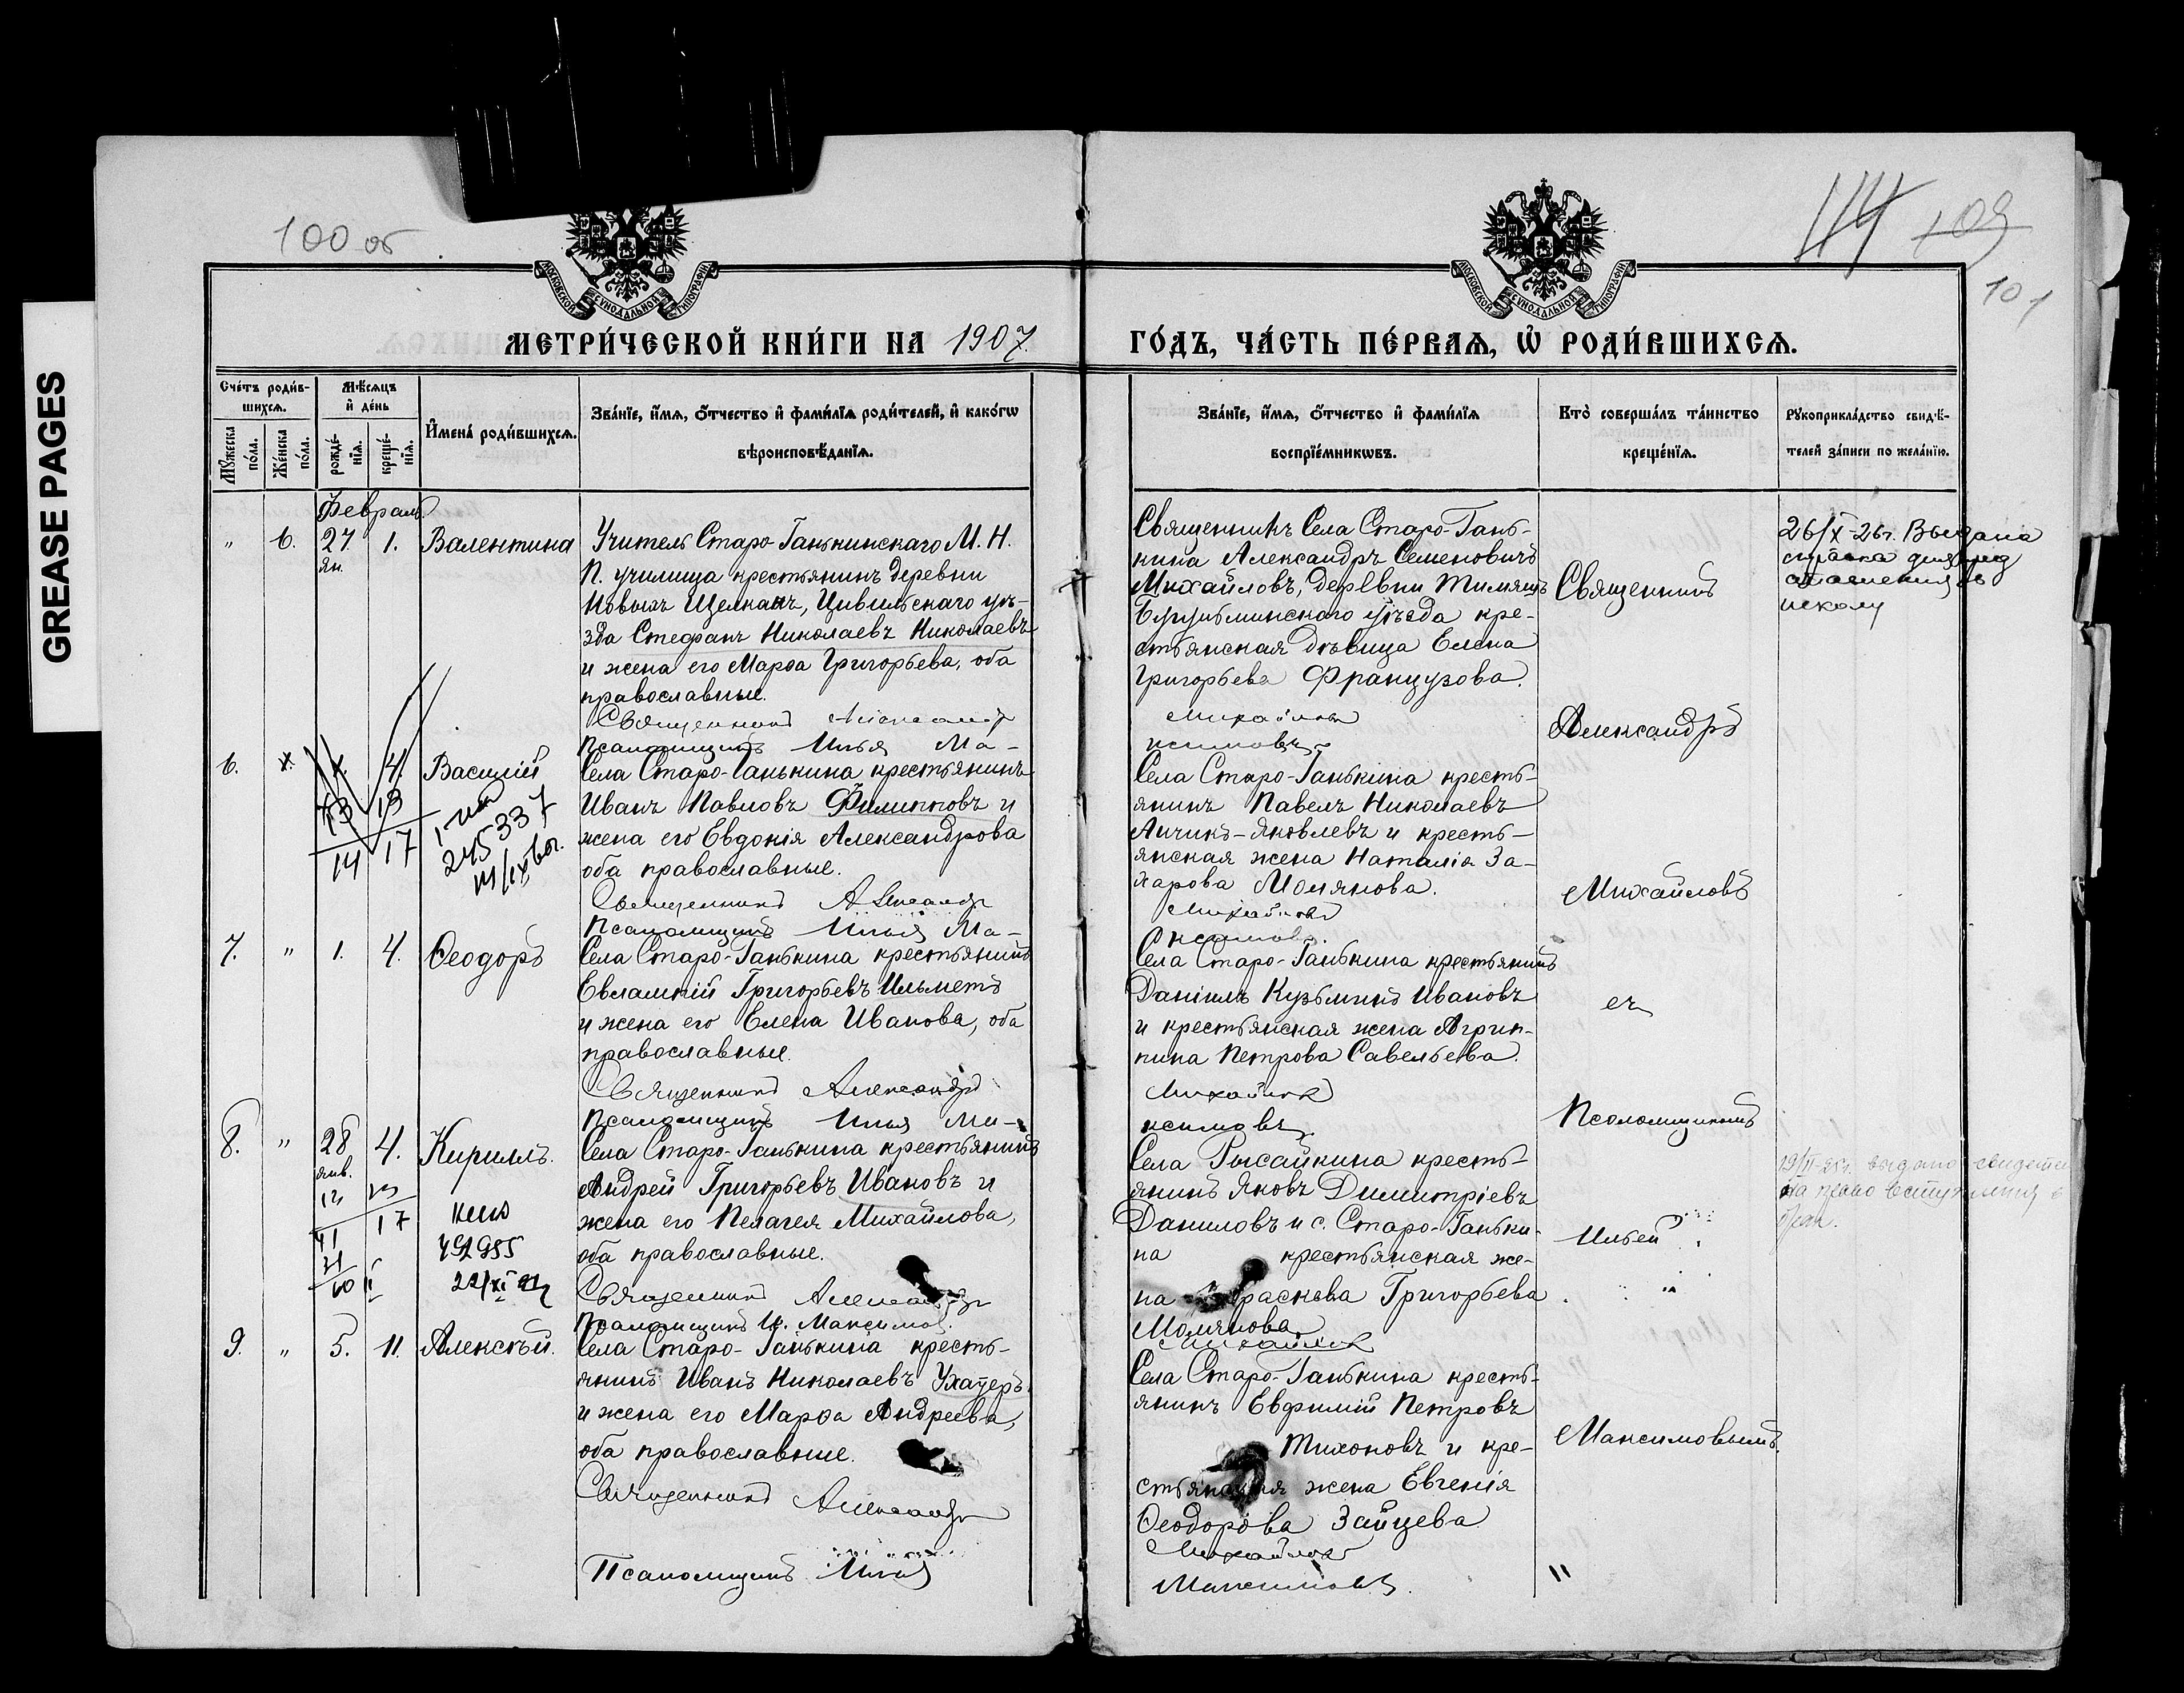 GREASE PAGES
100 об
114 109
101
МОСКОВСКОЙ СУНОДАЛЬНОЙ ТИПОГРАФІИ
МОСКОВСКОЙ СУНОДАЛЬНОЙ ТИПОГРАФІИ
МЕТРИ́ЧЕСКОЙ КНИ́ГИ НА 1907.
ГО́ДЪ, ЧА́СТЬ ПЕ́РВАѦ, Ѡ҆ РОДИ́ВШИХСѦ.
Сче́тъ роди́в-
шихсѧ.
Мꙋ́жеска по́ла.
Же́нска по́ла.
Мѣ́сѧцъ
и҆ де́нь
рожде́-
нїѧ.
креще́-
нїѧ.
И҆мена̀ роди́вшихсѧ.
Зва́нїе, и҆́мѧ, ѻ҆́тчество и҆ фами́лїѧ роди́телей, и҆ како́гѡ
вѣроисповѣ́данїѧ.
Зва́нїе, и҆́мѧ, ѻ҆́тчество и҆ фами́лїѧ
воспрїе́мникѡвъ.
Кто̀ соверша́лъ та́инство
креще́нїѧ.
Рꙋкоприкла́дство свидѣ́-
телей за́писи по жела́нїю.
Февраль.
" 6. 27 ян. 1. Валентина
Учитель Старо-Ганькинскаго М. Н.
П. училища крестьянинъ деревни
Новыхъ Щелканъ, Цивильскаго уѣ-
зда Стефанъ Николаевъ Николаевъ
и жена его Марѳа Григорьева, оба
православные.
Священникъ Александръ
Псаломщикъ Илья Ма-
Священникъ Села Старо-Гань-
кина Александръ Семеновичъ
Михайловъ, деревни Тимяшъ
Бугульминскаго уѣзда кре-
стьянская дѣвица Елена
Григорьева Французова.
Михайловъ
ксимовъ
26/X-26г. Выдана
справка для пред
ставления в
школу
6. 4. Василій
13 19
14 17
245337
Села Старо-Ганькина крестьянинъ
Иванъ Павловъ Филипповъ и
жена его Евдокія Александрова
оба православные.
Священникъ Александръ
Псаломщикъ Илья Ма-
Села Старо-Ганькина кресть-
янинъ Павелъ Николаевъ
Яковлевъ и кресть-
янская жена Наталія За-
харова Молянова.
Михайловъ
ксимовъ.
7. " 1. 4. Ѳеодоръ
Села Старо-Ганькина крестьянинъ
Евлампій Григорьевъ Ильметъ
и жена его Елена Иванова, оба
православные.
Священникъ Александръ
Псаломщикъ Илья Ма-
Села Старо-Ганькина крестьянинъ
Даніилъ Кузьминъ Ивановъ
и крестьянская жена Агрип-
пина Петрова Савельева.
Михайловъ
ксимовъ
8. " 28 янв. 4. Кириллъ.
17
492985
22/XI
Села Старо-Ганькина крестьянинъ
Андрей Григорьевъ Ивановъ и
жена его Пелагея Михайлова,
оба православные.
Священникъ Александръ
Псаломщикъ И. Максимов.
Села Рысайкина кресть-
янинъ Яковъ Димитріевъ
Даниловъ и с. Старо-Ганьки-
на крестьянская же-
на Параскева Григорьева
Молянова
Михайлов
19/II-25г. выдано свидетел
на право вступления в
брак.
9. " 5. 11. Алексѣй.
Села Старо-Ганькина кресть-
янинъ Иванъ Николаевъ Ухатеръ
и жена его Марѳа Андреева,
оба православные.
Священникъ Александръ
Псаломщикъ Илья
Села Старо-Ганькина кресть-
янинъ Евфимій Петровъ
Тихоновъ и кре-
стьянская жена Евгенія
Ѳеодорова Зайцева
Михайловъ
Максимовъ.
Священникъ
Александръ
Михайловъ
съ
Псаломщикомъ
Ильей
Максимовымъ.
"